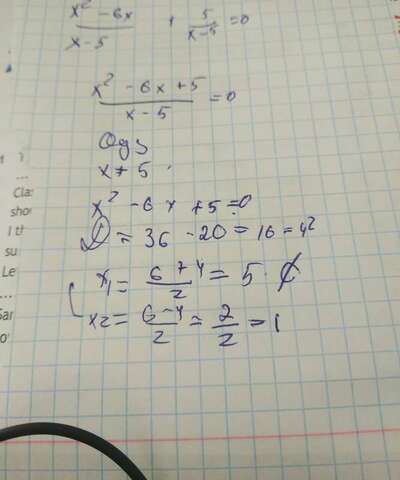 x² - 6x / x - 5 + 5 / x - 5 = 0
x² - 6x + 5 / x - 5 = 0
Одз
x ≠ 5
x² - 6x + 5 = 0
D = 36 - 20 = 16 = 4²
x₁ = 6 + 4 / 2 = 5 ∉
x₂ = 6 - 4 / 2 = 2 / 2 = 1
Cla
sho
I th
su
Le
...